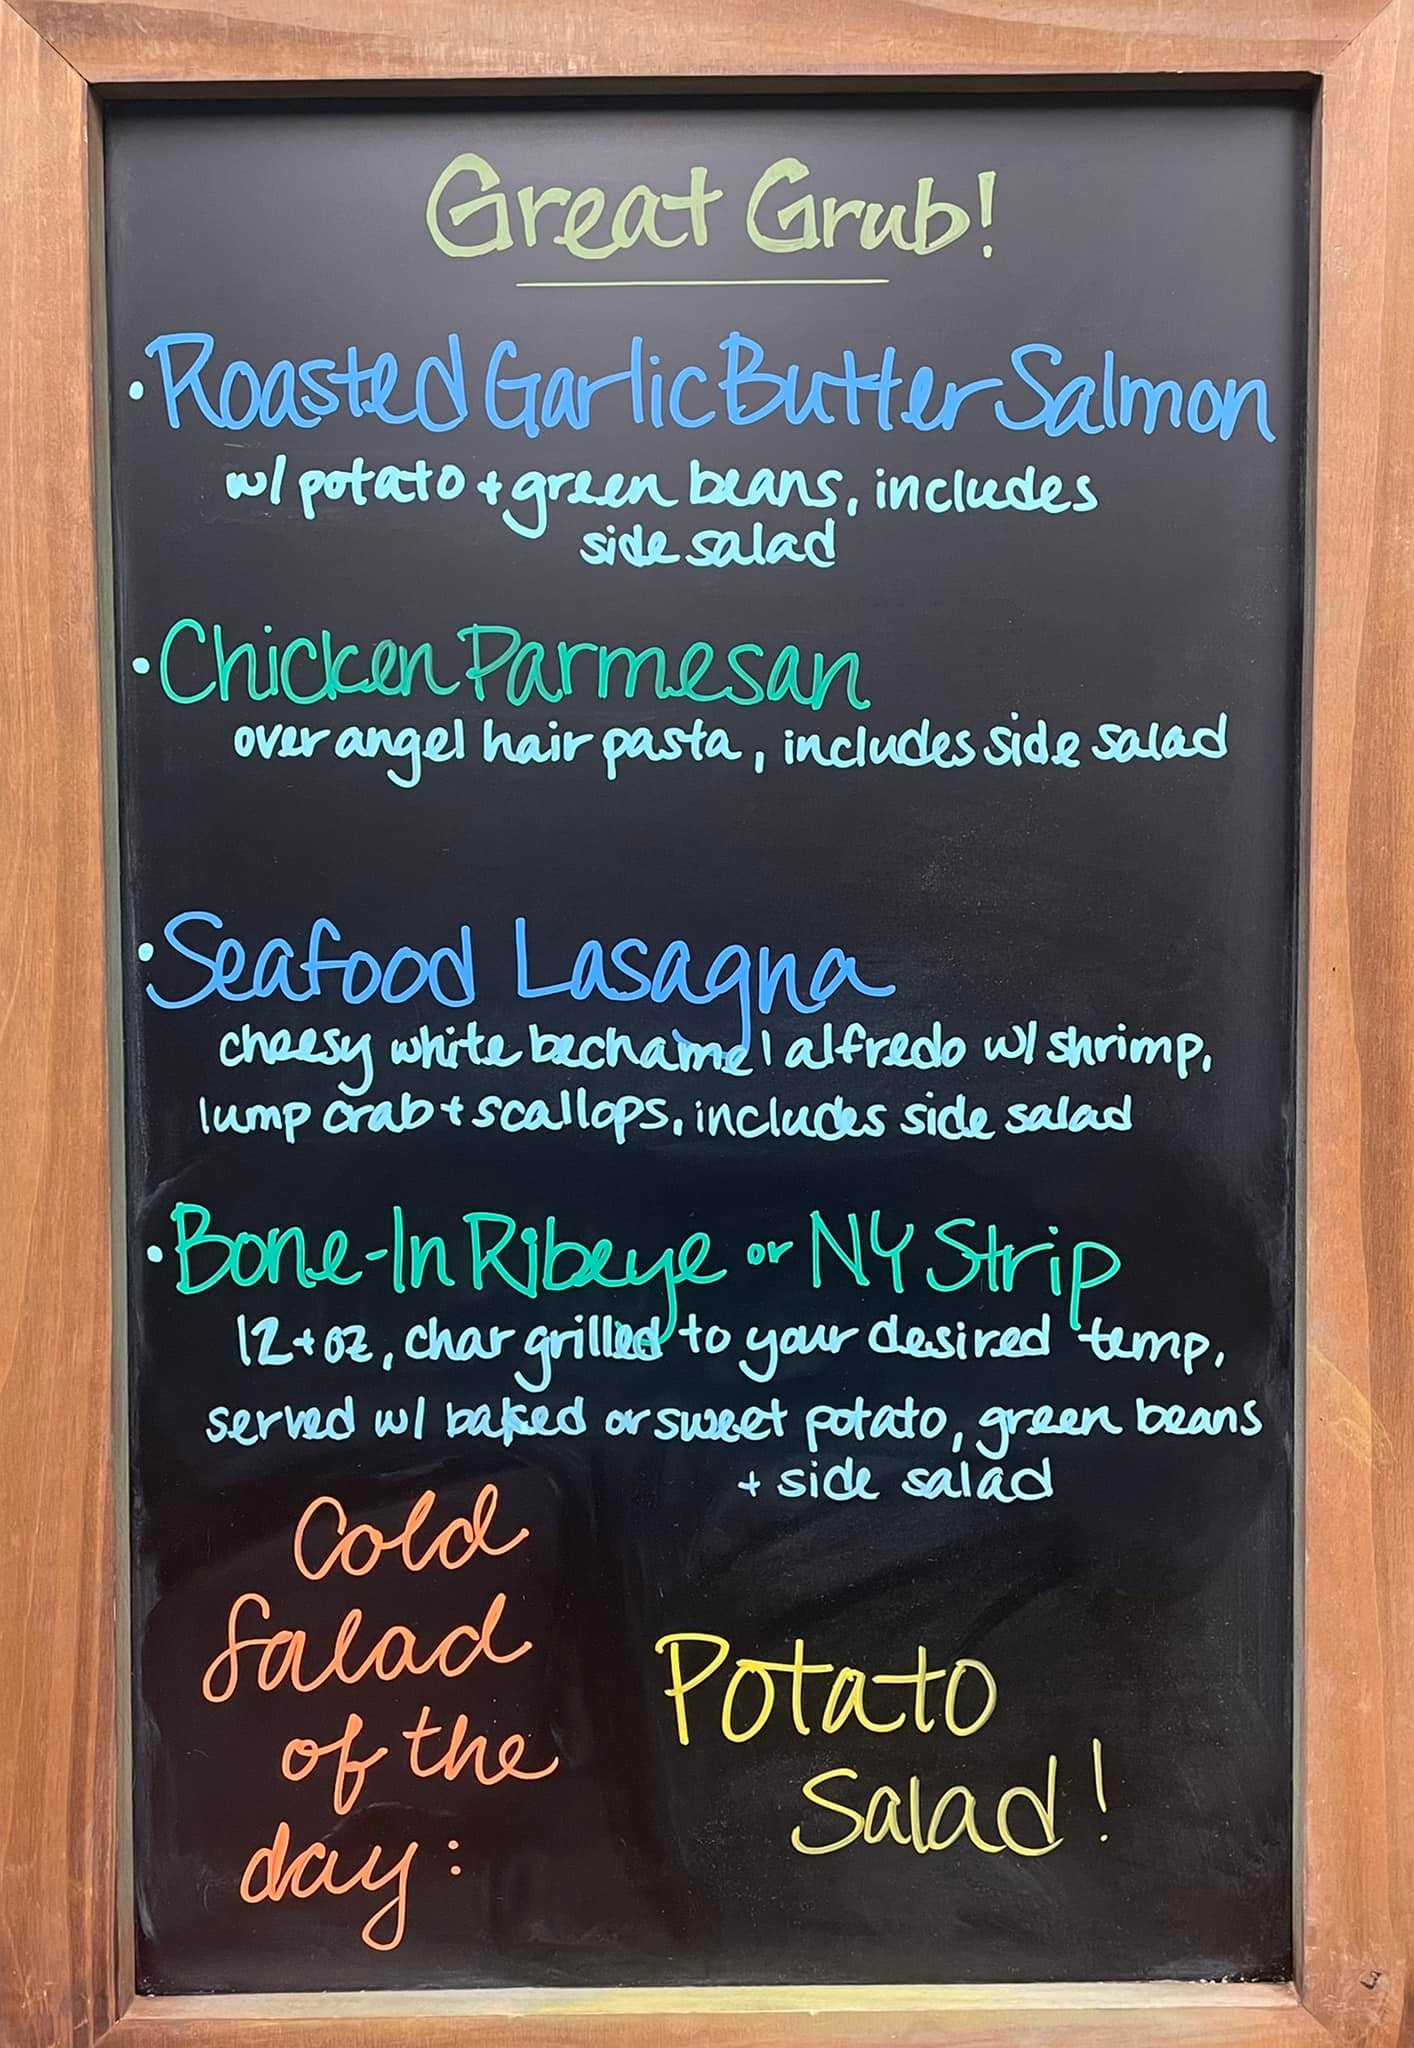 Great Grub!
• Roasted Garlic Butter Salmon
w/ potato + green beans, includes
side salad
• Chicken Parmesan
over angel hair pasta, includes side salad
• Seafood Lasagna
cheesy white bechamel alfredo w/ shrimp,
lump crab + scallops, includes side salad
• Bone-In Ribeye or NY Strip
12+oz, char grilled to your desired temp,
served w/ baked or sweet potato, green beans
+ side salad
Cold
Salad
of the
day:
Potato
Salad!